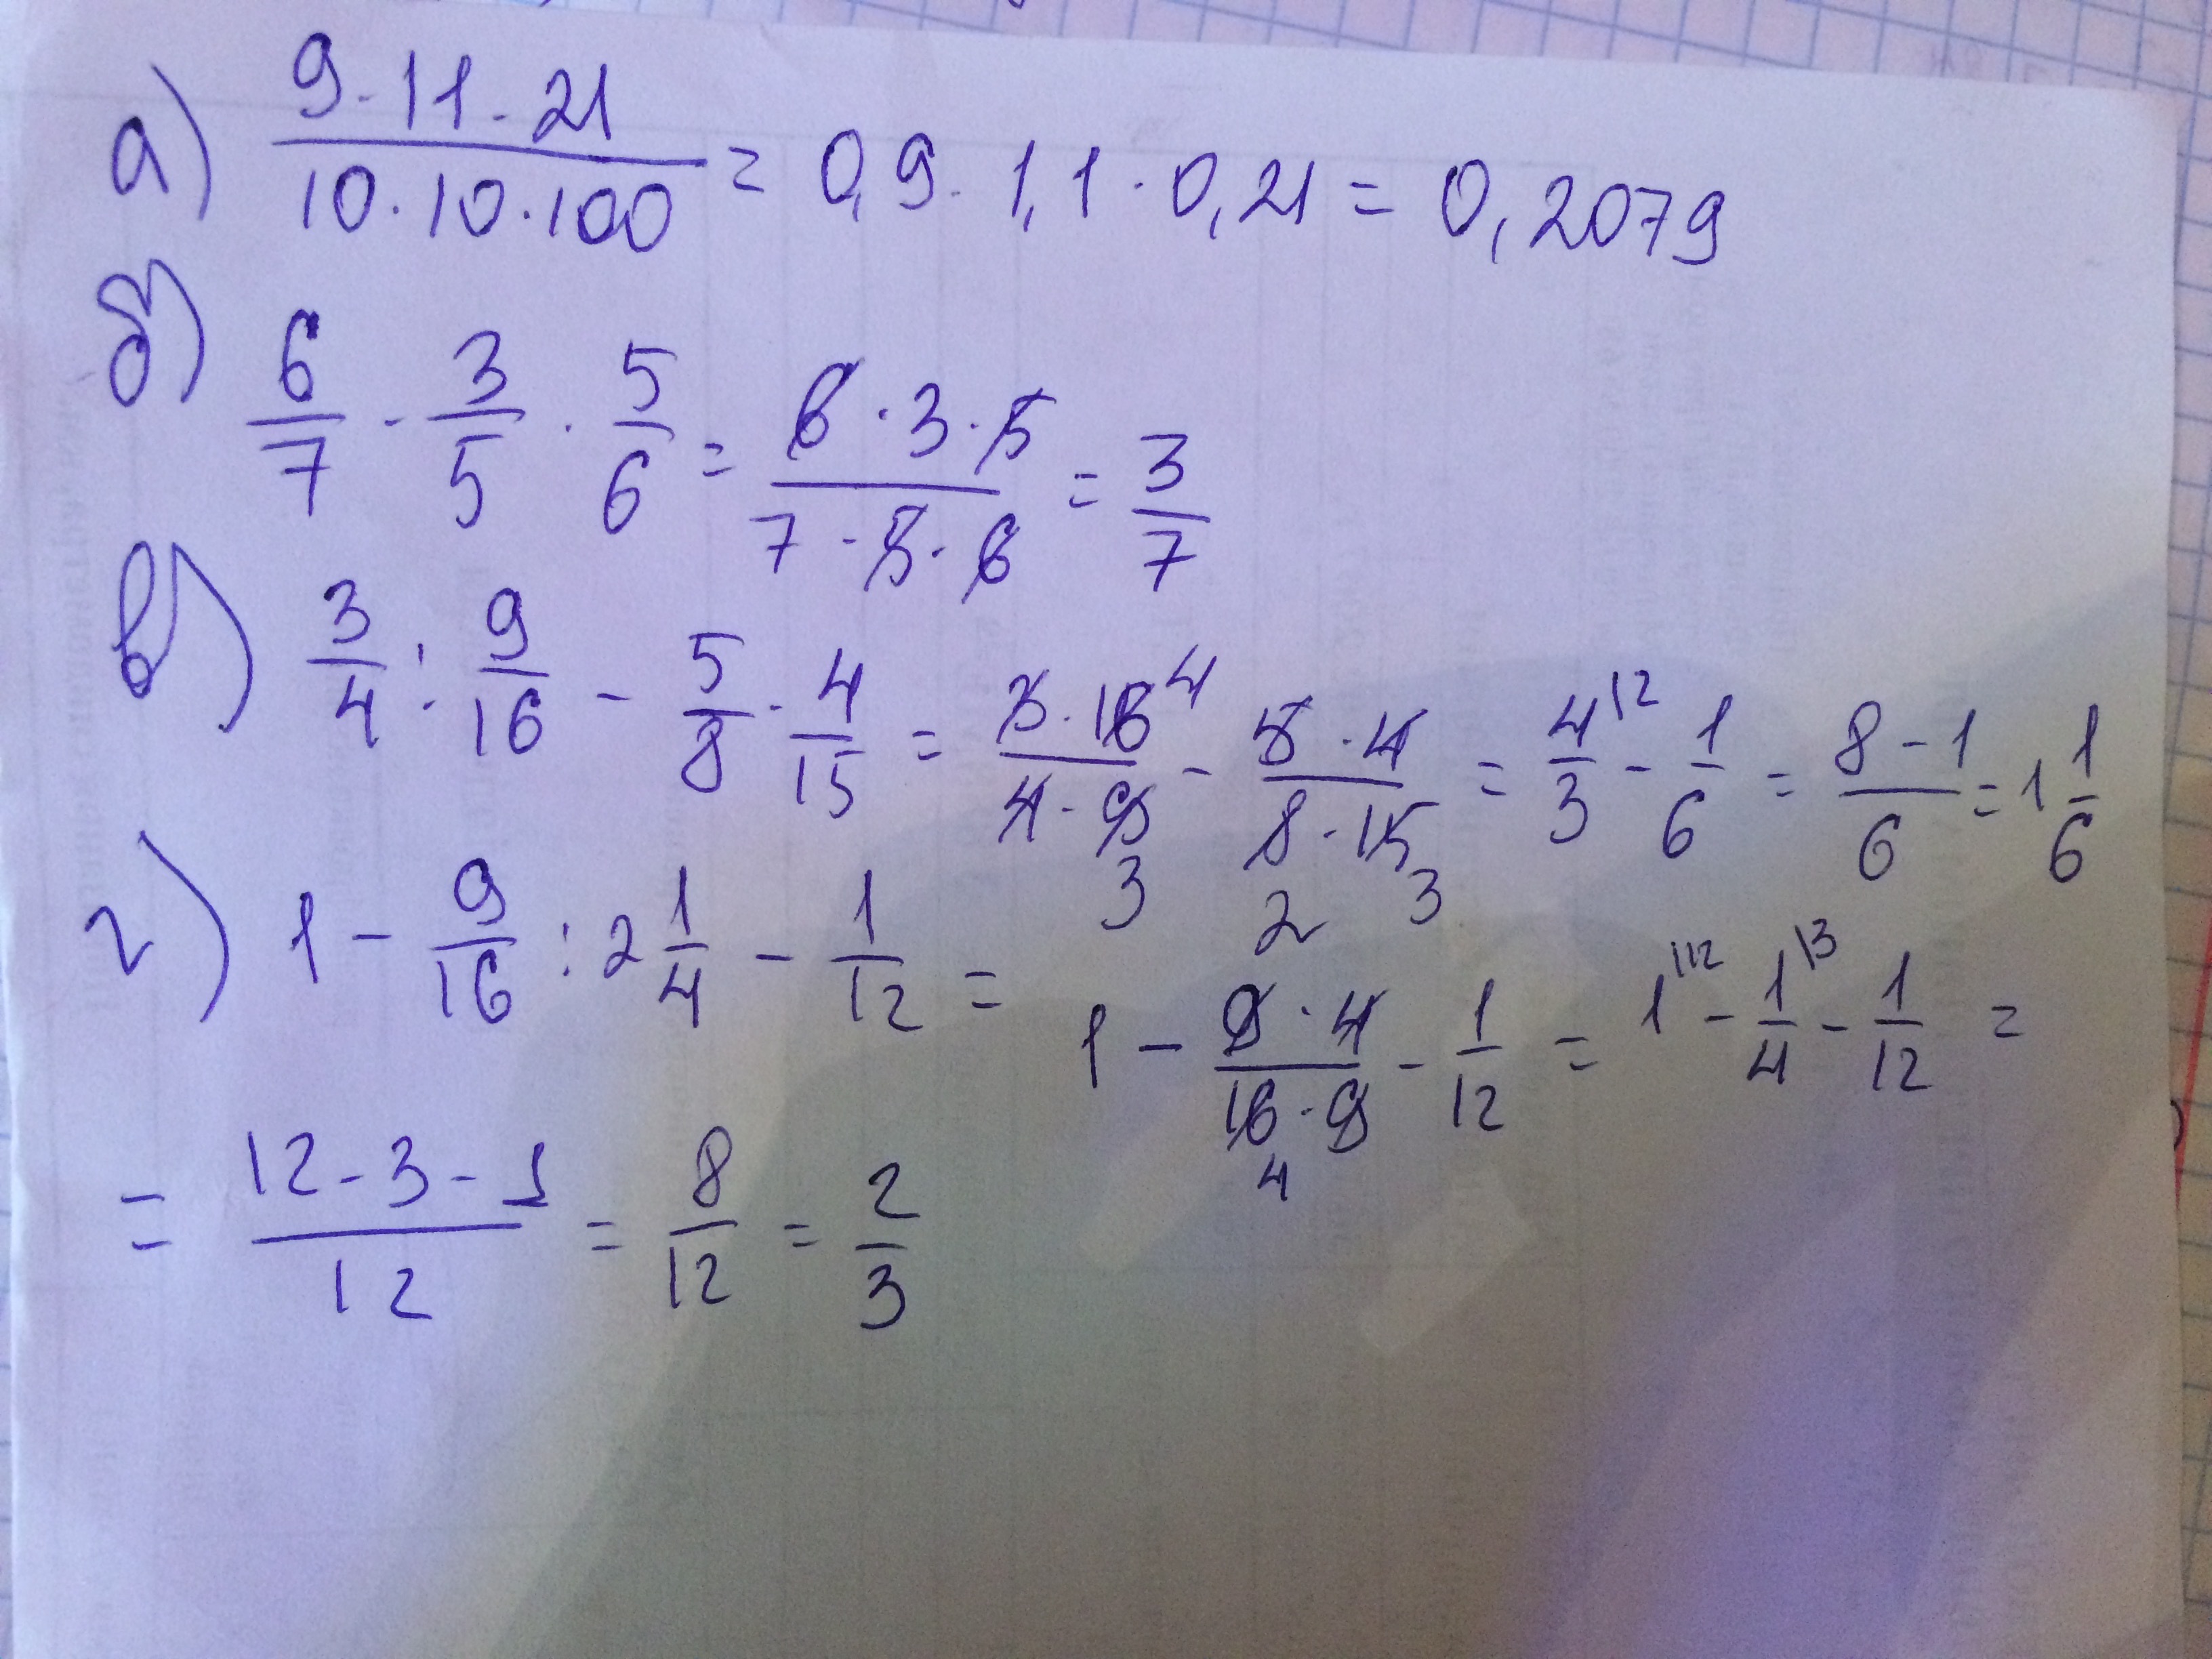 а) 9·11·21/10·10·100 = 0,9·1,1·0,21 = 0,2079
б) 6/7 · 3/5 · 5/6 = 6·3·5/7·5·6 = 3/7
в) 3/4 : 9/16 - 5/8 · 4/15 = 3·16 4/4·9 3 - 5·4/8·15 2 3 = 4/3 \2 - 1/6 = 8-1/6 = 1 1/6
г) 1 - 9/16 : 2 1/4 - 1/12 = 1 - 9·4/16·9 4 - 1/12 = 1 \12 - 1/4 \3 - 1/12 =
= 12-3-1/12 = 8/12 = 2/3